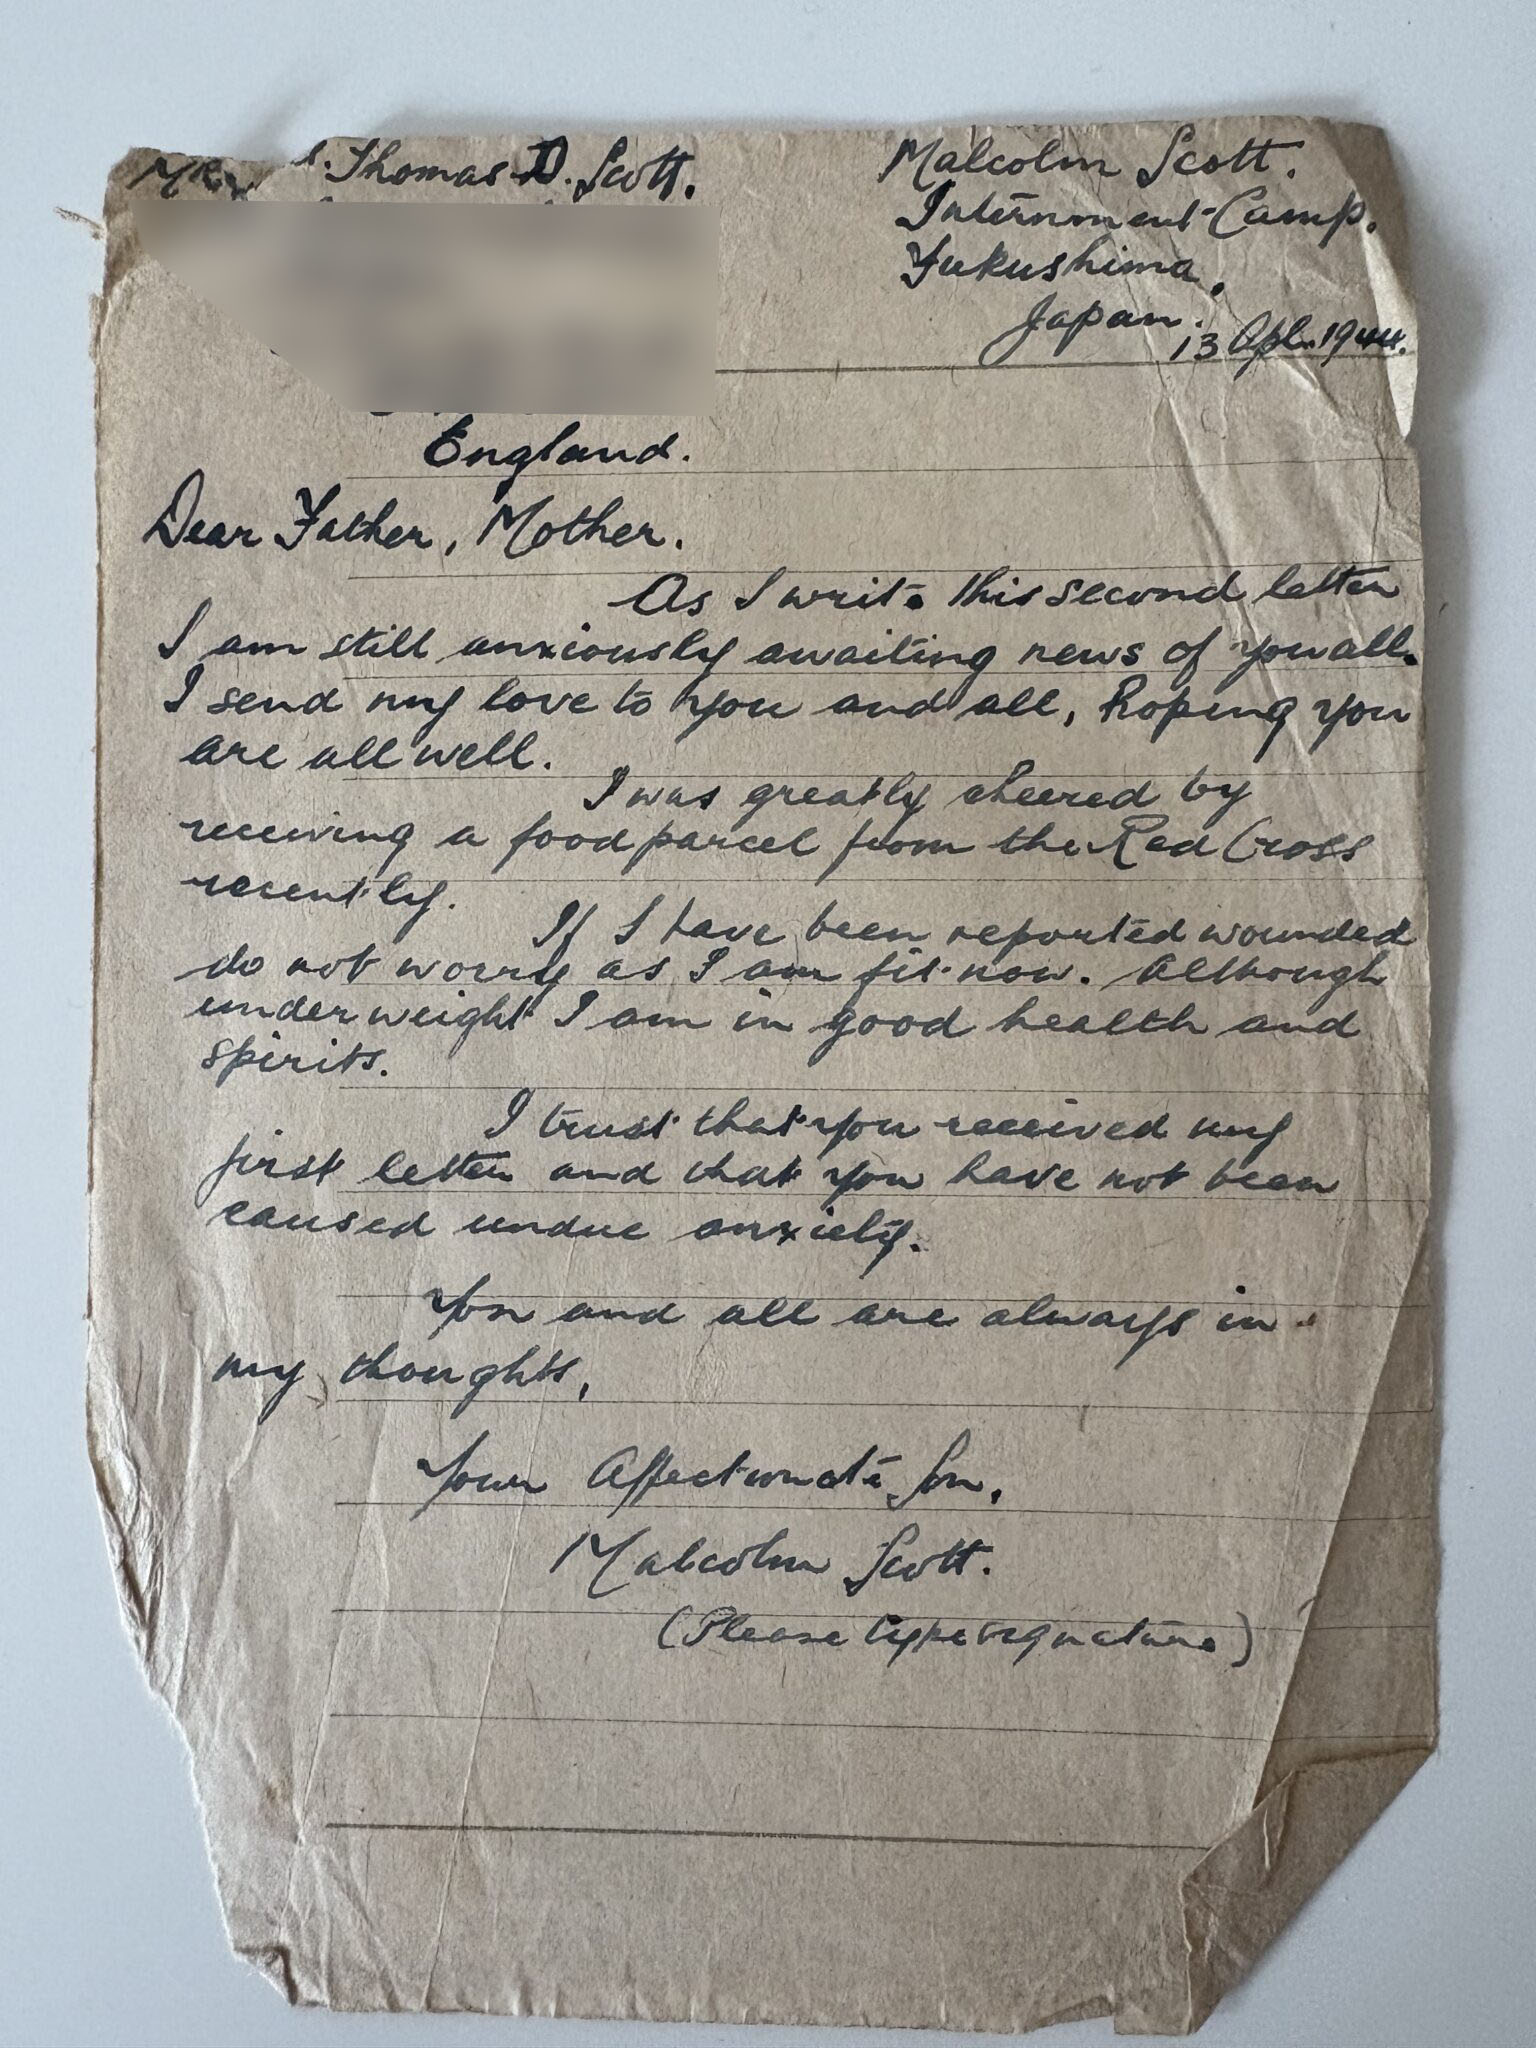 Thomas D. Scott.
England.
Malcolm Scott.
Internment Camp.
Fukushima.
Japan.
13 Apl. 1944.
Dear Father, Mother.
As I write this second letter
I am still anxiously awaiting news of you all.
I send my love to you and all, hoping you
are all well.
I was greatly cheered by
receiving a food parcel from the Red Cross
recently.
If I have been reported wounded
do not worry as I am fit now. Although
underweight I am in good health and
spirits.
I trust that you received my
first letter and that you have not been
caused undue anxiety.
You and all are always in
my thoughts,
Your Affectionate Son,
Malcolm Scott.
(Please type signature)